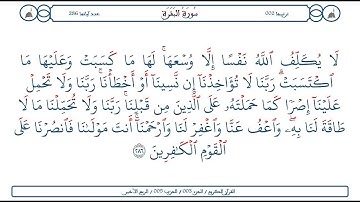 ترتيبها 002
سورة البقرة
عدد آياتها 286
لَا يُكَلِّفُ اللَّهُ نَفْسًا إِلَّا وُسْعَهَا ۚ لَهَا مَا كَسَبَتْ وَعَلَيْهَا مَا
اكْتَسَبَتْ ۗ رَبَّنَا لَا تُؤَاخِذْنَا إِن نَّسِينَا أَوْ أَخْطَأْنَا ۚ رَبَّنَا وَلَا تَحْمِلْ
عَلَيْنَا إِصْرًا كَمَا حَمَلْتَهُ عَلَى الَّذِينَ مِن قَبْلِنَا ۚ رَبَّنَا وَلَا تُحَمِّلْنَا مَا لَا
طَاقَةَ لَنَا بِهِ ۖ وَاعْفُ عَنَّا وَاغْفِرْ لَنَا وَارْحَمْنَا ۚ أَنتَ مَوْلَانَا فَانصُرْنَا عَلَى
الْقَوْمِ الْكَافِرِينَ ﴿٢٨٦﴾
القرآن الكريم / الجزء 003 / الحزب 005 / الربع الخامس